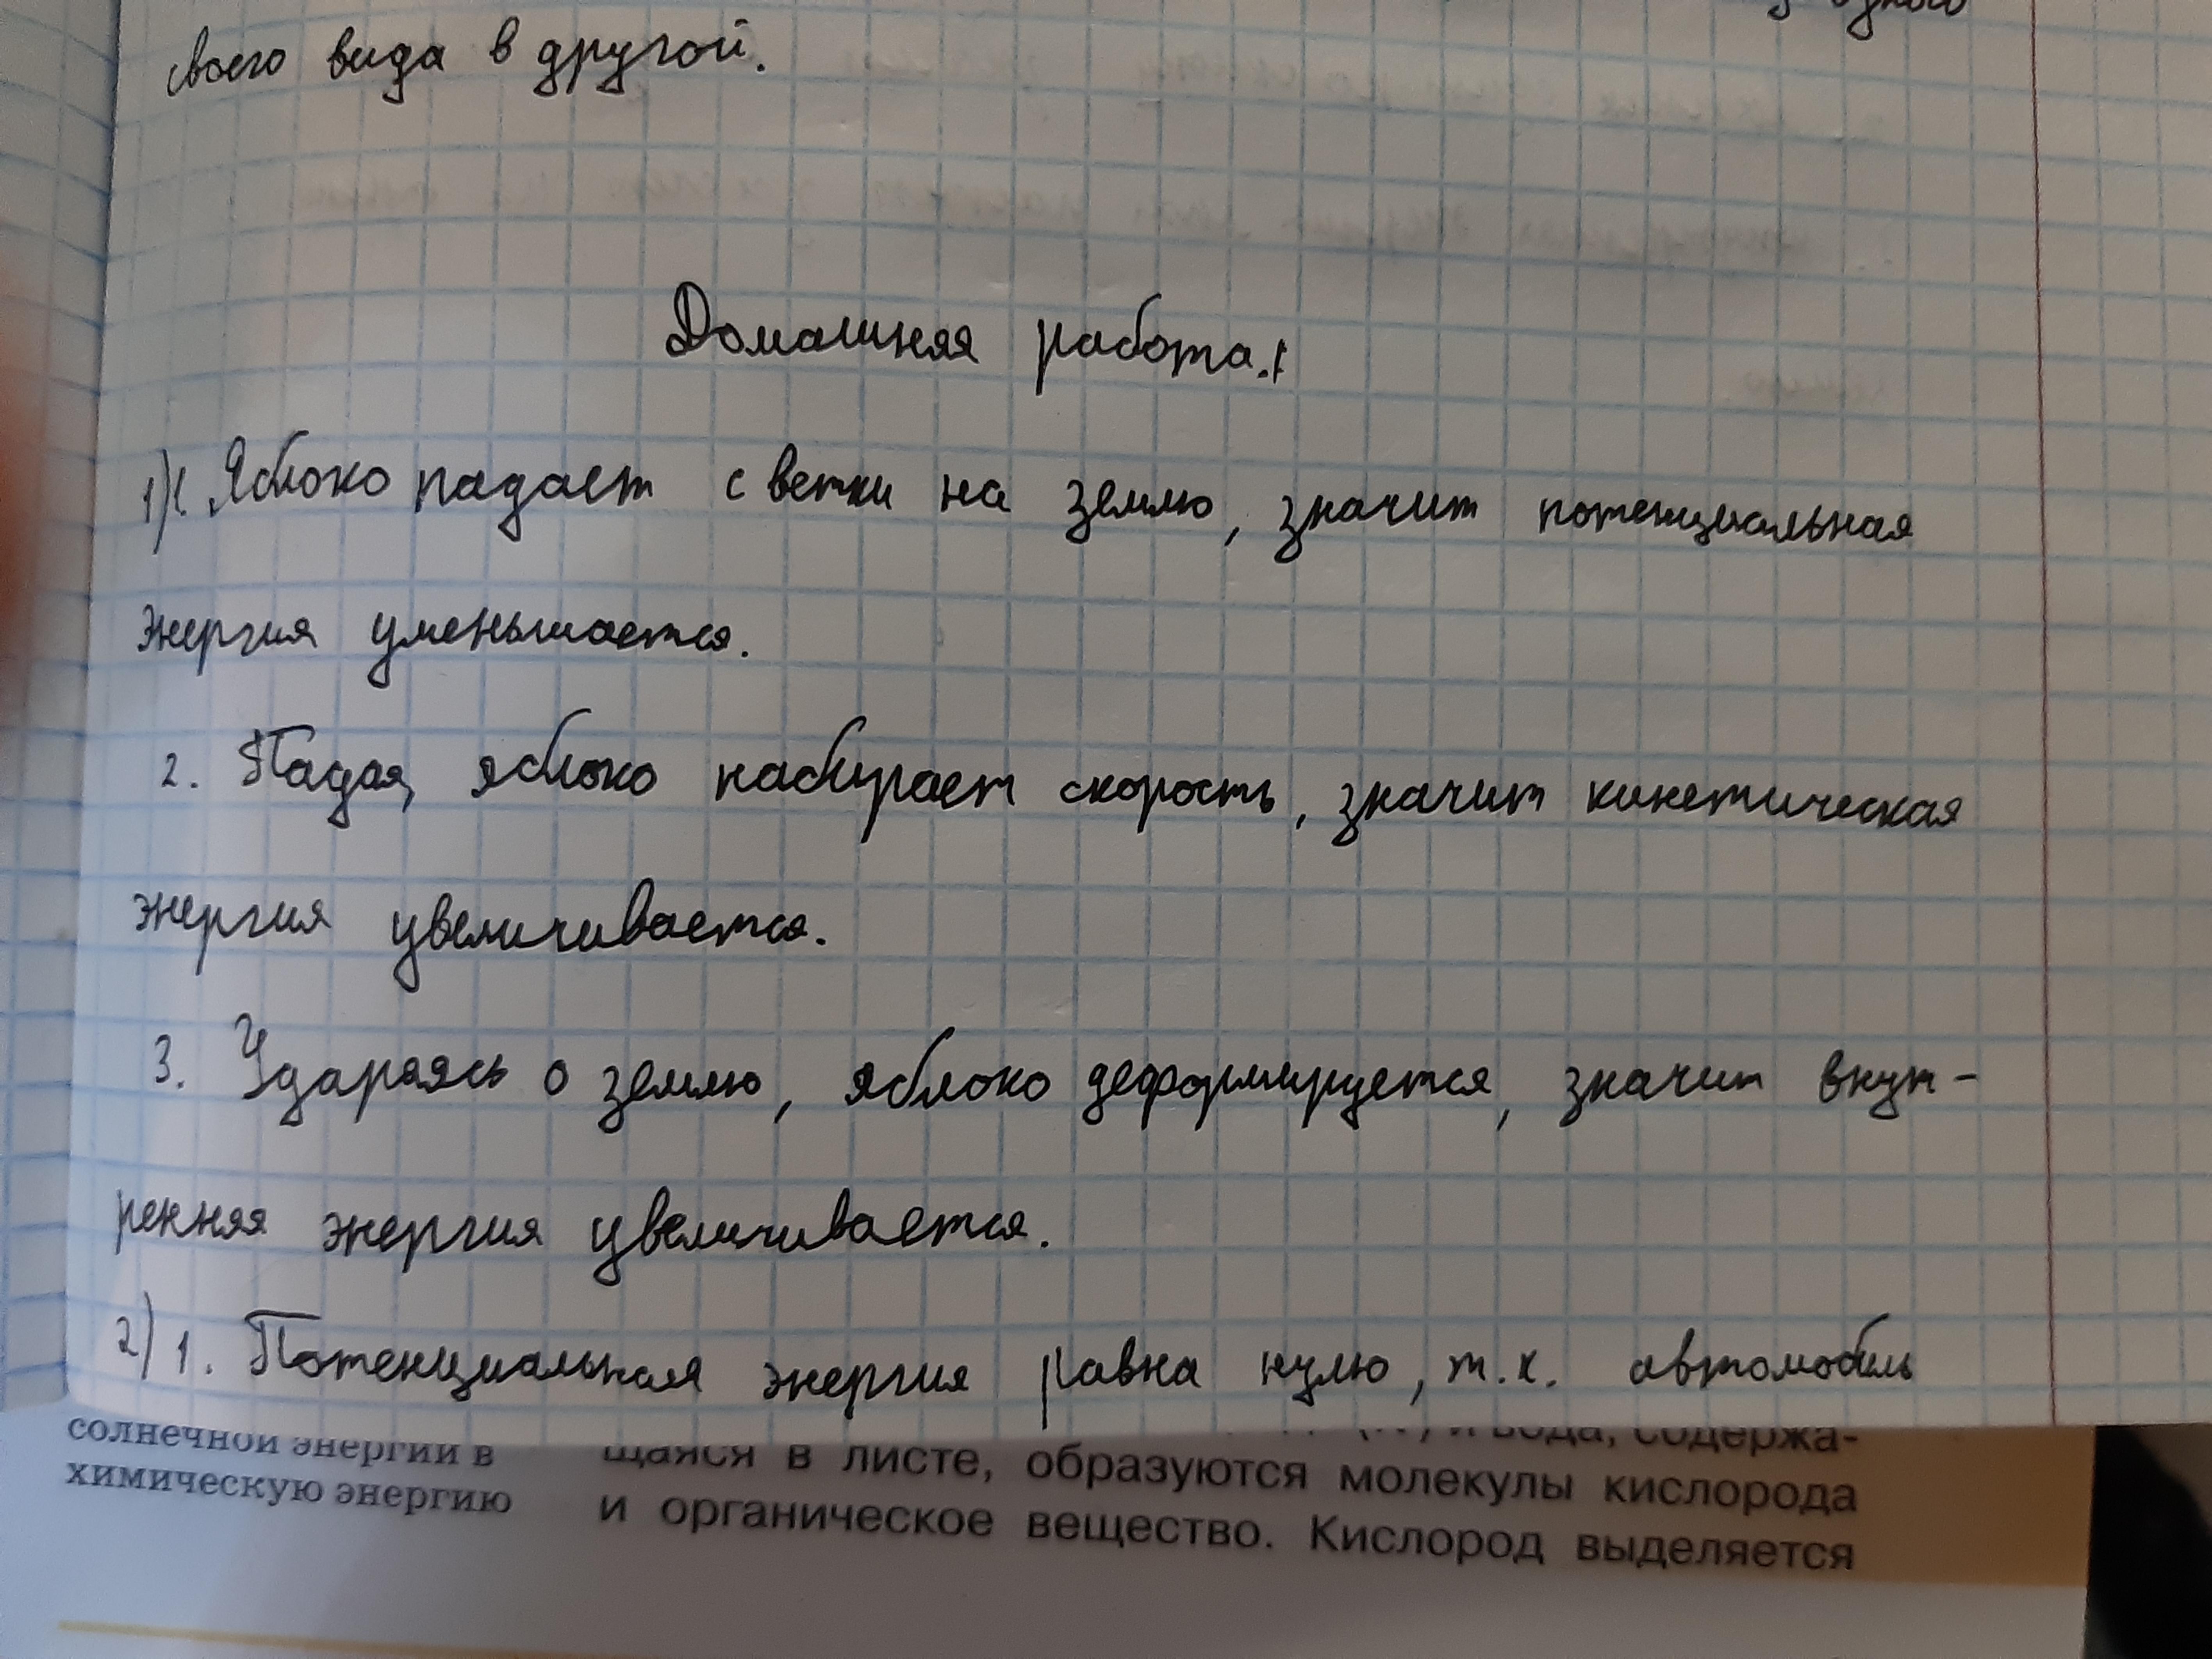 одного
своего вида в другой.
Домашняя работа.
1) Яблоко падает с ветки на землю, значит потенциальная
энергия уменьшается.
2. Падая, яблоко набирает скорость, значит кинетическая
энергия увеличивается.
3. Ударяясь о землю, яблоко деформируется, значит внут-
ренняя энергия увеличивается.
2) 1. Потенциальная энергия равна нулю, т.к. автомобиль
солнечной энергии в
химическую энергию
и вода, содержа-
щаяся в листе, образуются молекулы кислорода
и органическое вещество. Кислород выделяется